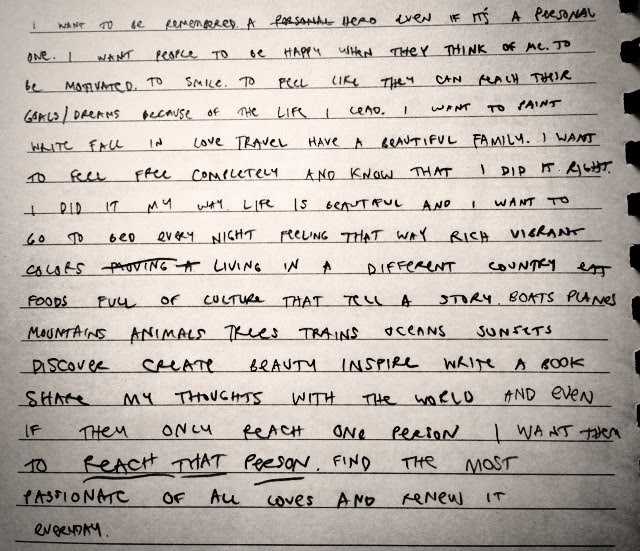 I WANT TO BE REMEMBERED A PERSONAL HERO EVEN IF IT'S A PERSONAL
ONE. I WANT PEOPLE TO BE HAPPY WHEN THEY THINK OF ME. TO
BE MOTIVATED. TO SMILE. TO FEEL LIKE THEY CAN REACH THEIR
GOALS/DREAMS BECAUSE OF THE LIFE I LEAD. I WANT TO PAINT
WRITE FALL IN LOVE TRAVEL HAVE A BEAUTIFUL FAMILY. I WANT
TO FEEL FREE COMPLETELY AND KNOW THAT I DID IT RIGHT.
I DID IT MY WAY. LIFE IS BEAUTIFUL AND I WANT TO
GO TO BED EVERY NIGHT FEELING THAT WAY RICH VIBRANT
COLORS MOVING A LIVING IN A DIFFERENT COUNTRY EAT
FOODS FULL OF CULTURE THAT TELL A STORY. BOATS PLANES
MOUNTAINS ANIMALS TREES TRAINS OCEANS SUNSETS
DISCOVER CREATE BEAUTY INSPIRE WRITE A BOOK
SHARE MY THOUGHTS WITH THE WORLD AND EVEN
IF THEY ONLY REACH ONE PERSON I WANT THEM
TO REACH THAT PERSON. FIND THE MOST
PASSIONATE OF ALL LOVES AND RENEW IT
EVERYDAY.